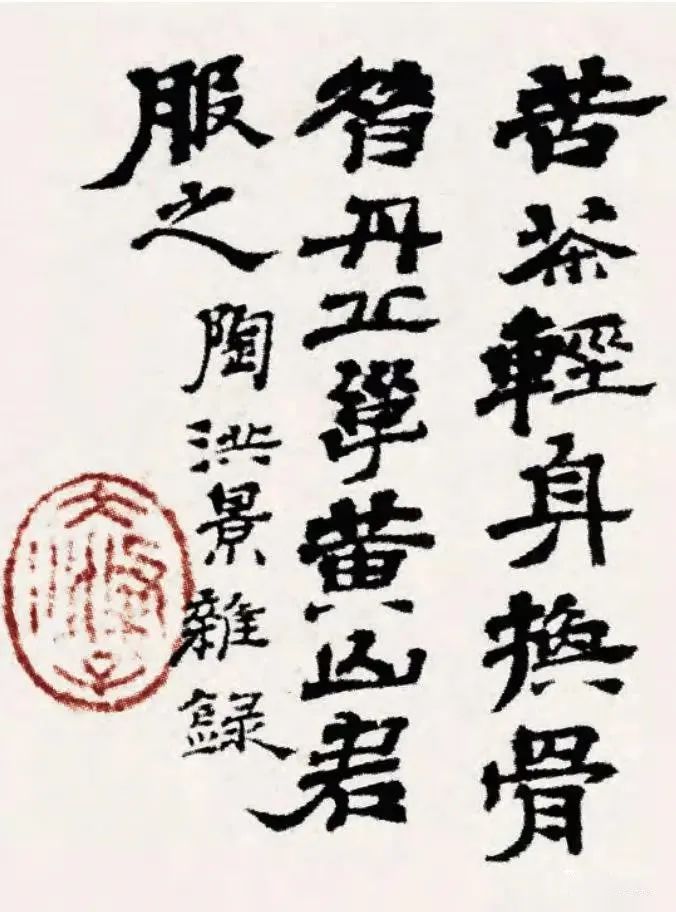 苦茶輕身換骨
昔丹丘子黃山君
服之
陶洪景雜錄